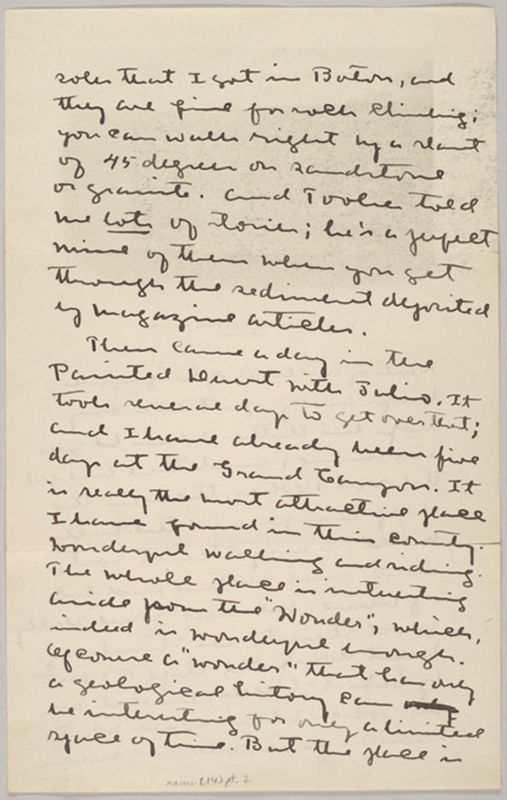 soles that I got in Boton, and
they are fine for rock climbing;
you can walk right up a slant
of 45 degrees on sandstone
or granite. And Tooker told
me lots of stories; he's a perfect
mine of them when you get
through the sediment deposited
by magazine articles.
Then came a day in the
Painted Desert with Julio. It
took several days to get over that;
and I have already been five
days at the Grand Canyon. It
is really the most attractive place
I have found in this country.
Wonderful walking and riding.
The whole place is interesting
aside from the "Wonder", which,
indeed is wonderful enough.
Of course a "wonder" that has only
a geological history can
be interesting for only a limited
space of time. But the place is
(14) pt. 2